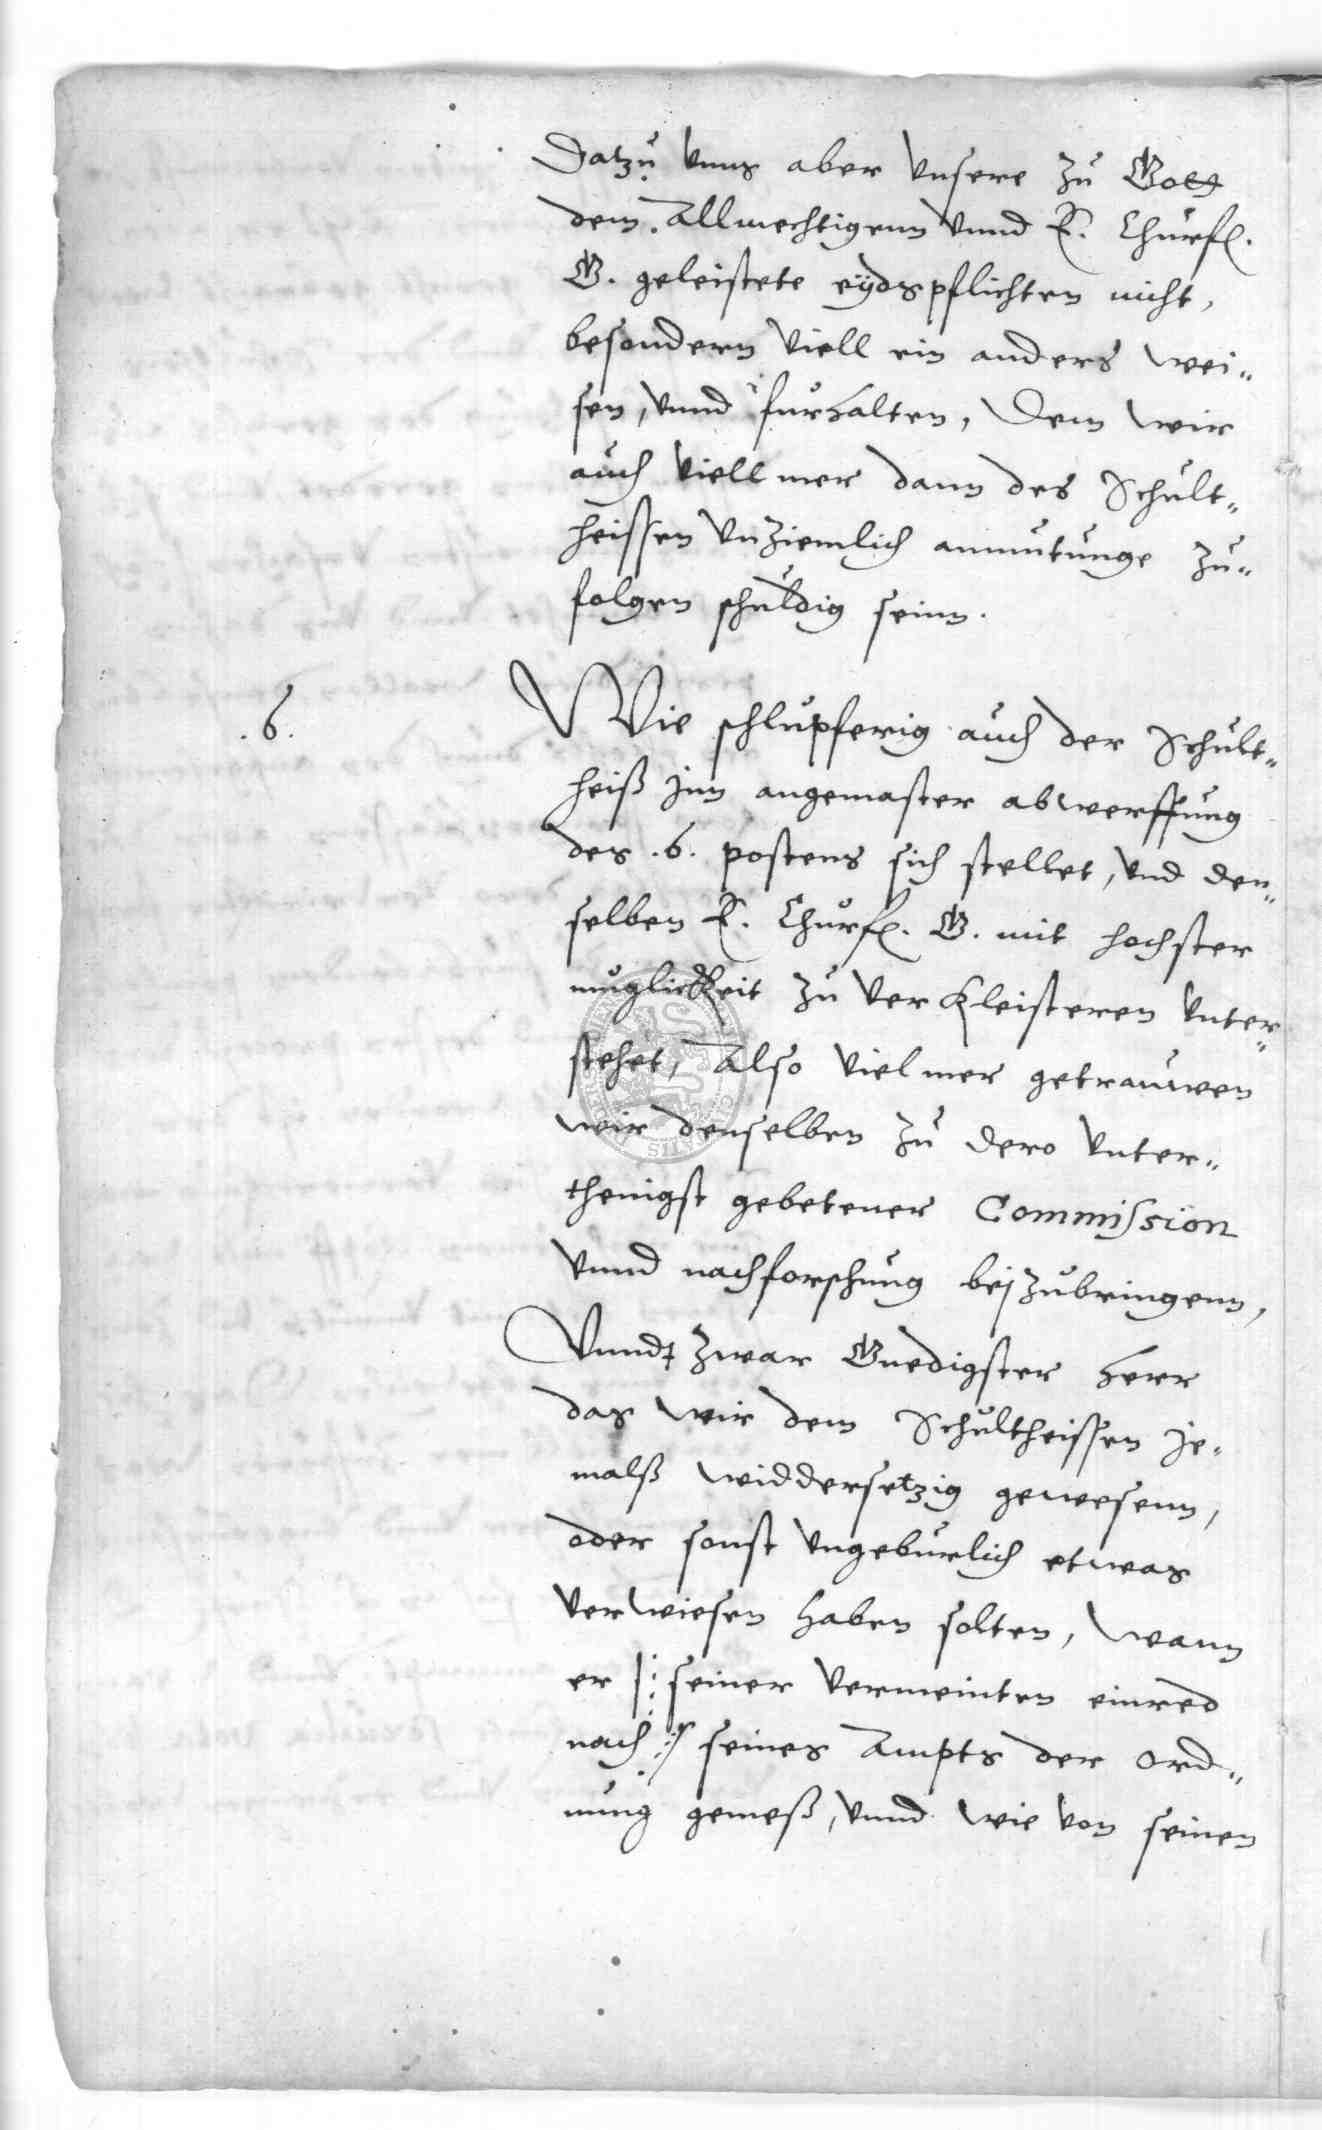 Datzu unns aber unsere zu Gott
dem Allmechtigenn unnd E. Churfl.
G. geleistete eÿdspflichten nicht,
besondern viell ein anders wei„
sen, unnd furhalten, Dem wir
auch viell mer dann des Schult„
heissen unziemlich anmutunge zu„
folgen schuldig seinn.
.6.
Wie schlupferig auch der Schult„
heiß jnn angemaster abwerffung
des .6. postens sich stellet, und den„
selben E. Churfl. G. mit hochster
muglickeit zu verkleisteren unter„
stehet, Also viel mer getrauwen
wir denselben zu dero unter„
thenigst gebetener Commission
unnd nachforschung beizubringenn,
Unndt zwar Gnedigster Herr
das wir dem Schultheissen Je„
malß widdersetzig gewesenn,
oder sonst ungeburlich etwas
verwiesen haben solten, wann
er |: seiner vermeinten einred
nach :| seines Ampts der Ord„
nung gemeß, unnd wie von seinen